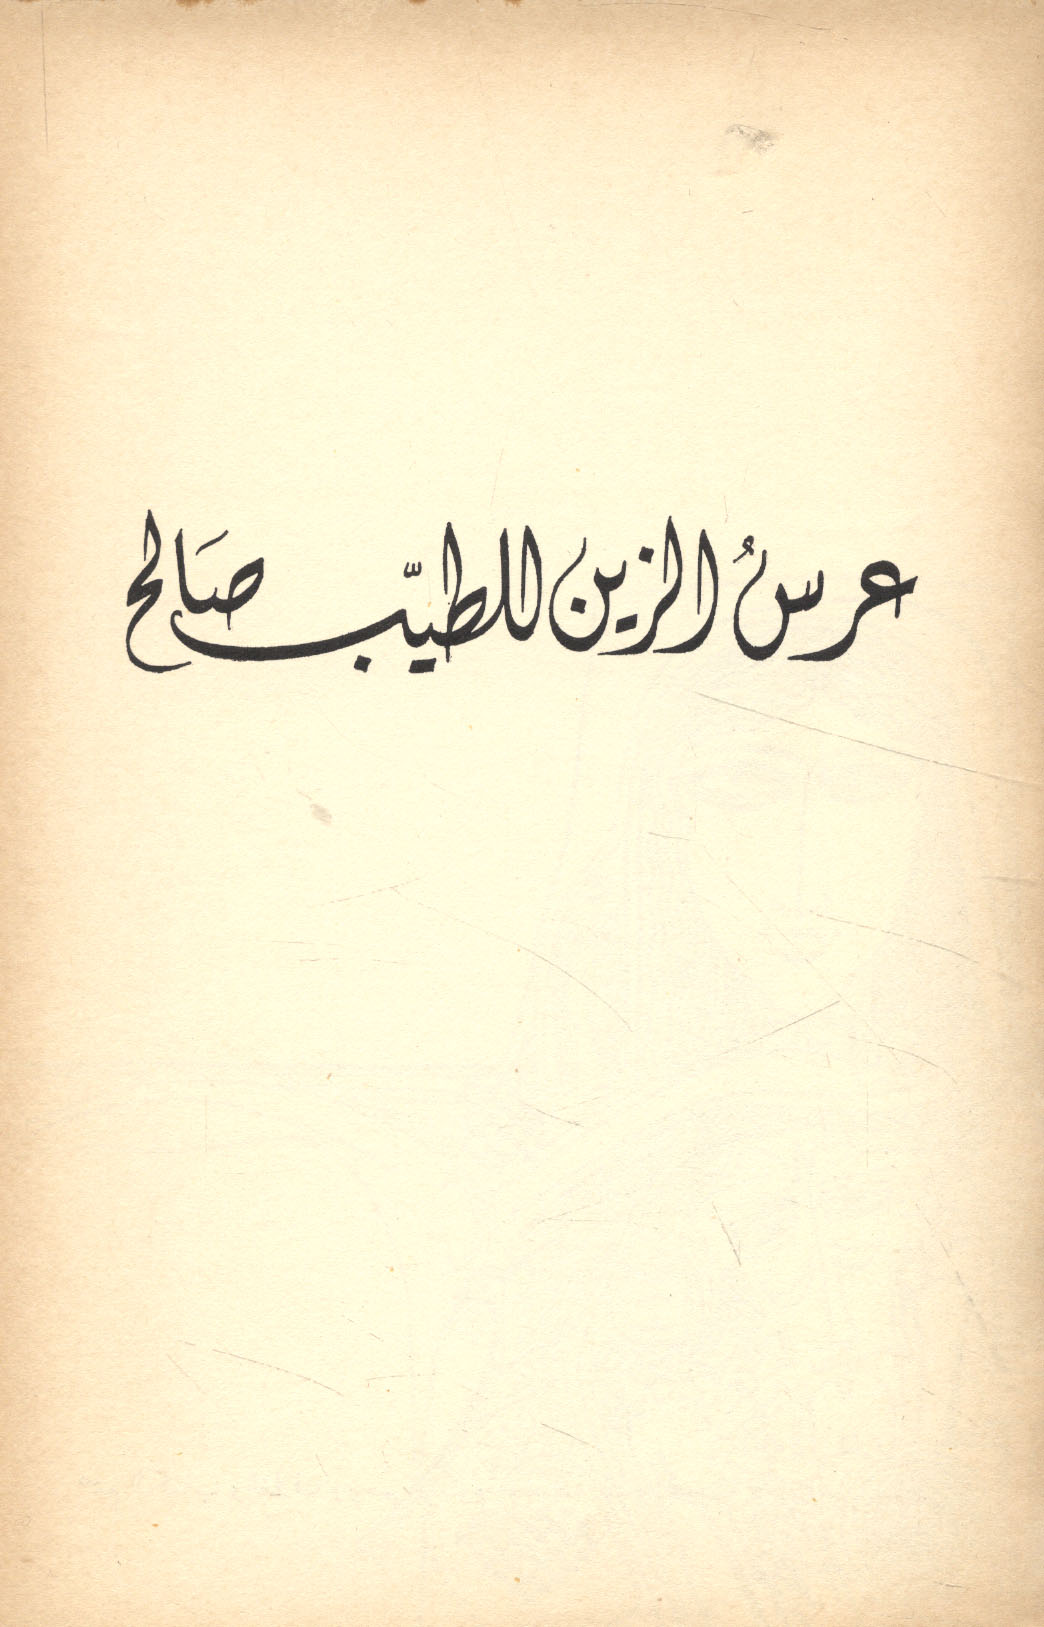 عرسُ الزين للطيّب صَالح